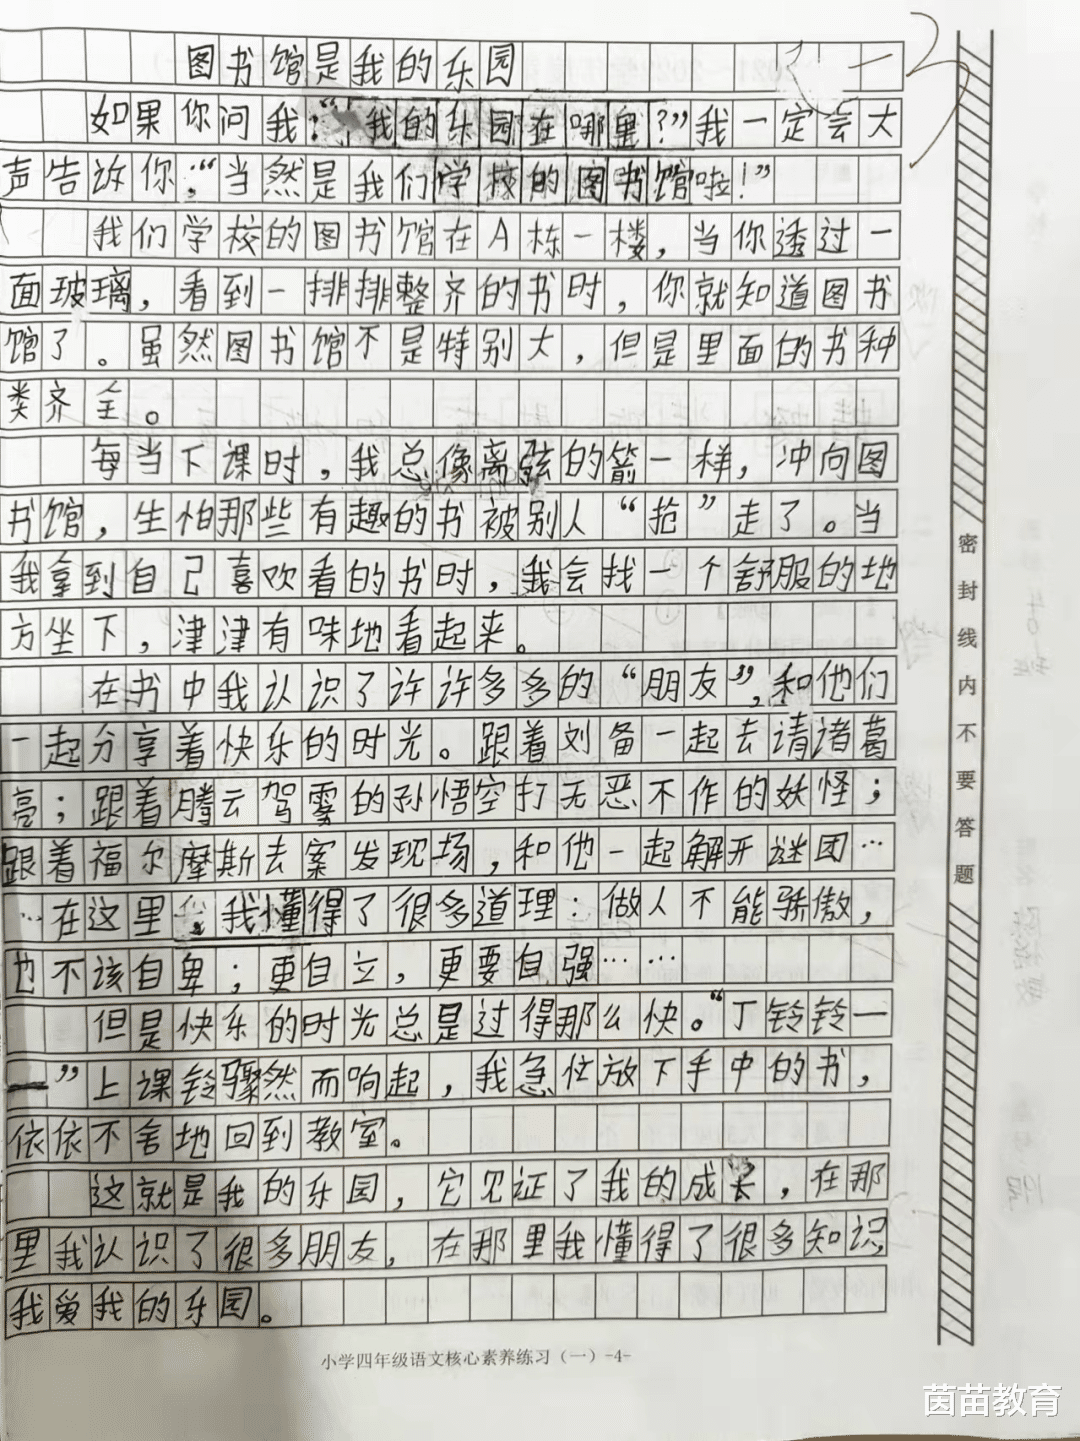 图书馆是我的乐园
如果你问我：“我的乐园在哪里？”我一定会大
声告诉你：“当然是我们学校的图书馆啦！”
我们学校的图书馆在A栋一楼，当你透过一
面玻璃，看到一排排整齐的书时，你就知道图书
馆了。虽然图书馆不是特别大，但是里面的书种
类齐全。
每当下课时，我总像离弦的箭一样，冲向图
书馆，生怕那些有趣的书被别人“抢”走了。当
我拿到自己喜欢看的书时，我会找一个舒服的地
方坐下，津津有味地看起来。
在书中我认识了许许多多的“朋友”，和他们
一起分享着快乐的时光。跟着刘备一起去请诸葛
亮；跟着腾云驾雾的孙悟空打无恶不作的妖怪；
跟着福尔摩斯去案发现场，和他一起解开谜团…
…在这里，我懂得了很多道理：做人不能骄傲，
也不该自卑；更自立，更要自强……
但是快乐的时光总是过得那么快。“丁铃铃—
—”上课铃骤然而响起，我急忙放下手中的书，
依依不舍地回到教室。
这就是我的乐园，它见证了我的成长，在那
里我认识了很多朋友，在那里我懂得了很多知识，
我爱我的乐园。
小学四年级语文核心素养练习（一）-4-
密封线内不要答题
茵苗教育